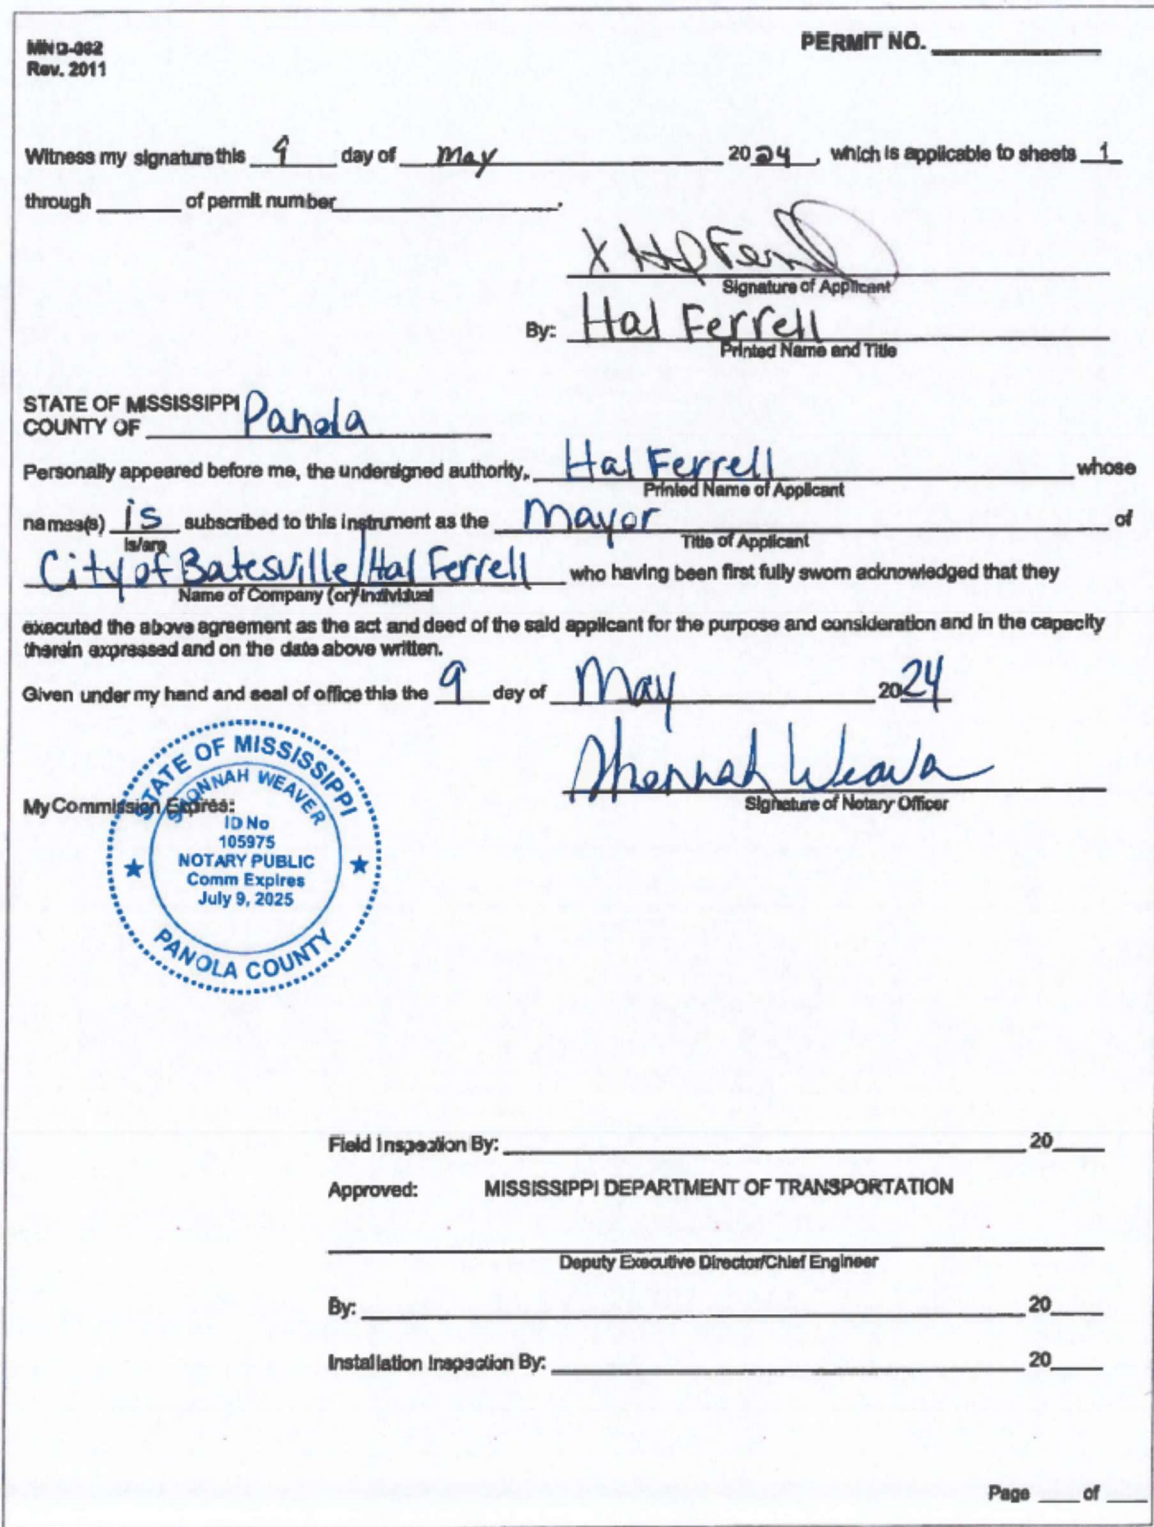 MND-082
Rev. 2011
PERMIT NO. ____________
Witness my signature this 9 day of May 2024, which is applicable to sheets 1
through ______ of permit number ____________.
X Hal Ferrell
Signature of Applicant
By: Hal Ferrell
Printed Name and Title
STATE OF MISSISSIPPI
COUNTY OF Panola
Personally appeared before me, the undersigned authority, Hal Ferrell whose
Printed Name of Applicant
names(s) is subscribed to this instrument as the Mayor of
is/are Title of Applicant
City of Batesville/Hal Ferrell who having been first fully sworn acknowledged that they
Name of Company (or) Individual
executed the above agreement as the act and deed of the said applicant for the purpose and consideration and in the capacity
therein expressed and on the date above written.
Given under my hand and seal of office this the 9 day of May 2024
Shonnah Weaver
Signature of Notary Officer
My Commission Expires:
STATE OF MISSISSIPPI
SHONNAH WEAVER
ID No
105975
NOTARY PUBLIC
Comm Expires
July 9, 2025
PANOLA COUNTY
Field Inspection By: ____________ 20____
Approved: MISSISSIPPI DEPARTMENT OF TRANSPORTATION
Deputy Executive Director/Chief Engineer
By: ____________ 20____
Installation Inspection By: ____________ 20____
Page ___ of ___